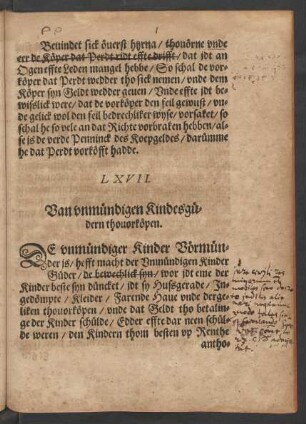 Bevindet sick överst hyrna / thovörne vnde
eer de Köper dat Perdt ridt effte drifft / dat idt an
Ogen effte Leden mangel hebbe / So schal de vor-
köper dat Perdt wedder tho sick nemen / vnde dem
Köper syn Geldt wedder geuen / Vnde effte idt be-
wislick were / dat de vorköper den feil gewust / vn-
de gelick wol den feil bedrechliker wyse / vorsaket / so
schal he so vele an dat Richte vorbraken hebben / al-
se is de verde Penninck des Koepgeldes / darümme
he dat Perdt vorköfft hadde.
LXVII.
Van vnmündigen Kindesgü-
dern thouorköpen.
DE vnmündiger Kinder Vörmün-
der is / hefft macht der Vnmündigen Kinder
Güder / de bewechlick syn / wor idt eine der
Kinder beste syn düncket / idt sy Hußgerade / In-
gedömpte / Kleider / Farende Haue vnde derge-
liken thouorköpen / vnde dat Geldt tho betalin-
ge der Kinder schülde / Edder effte dar neen schül-
de weren / den Kindern thom besten vp Renthe
antho-